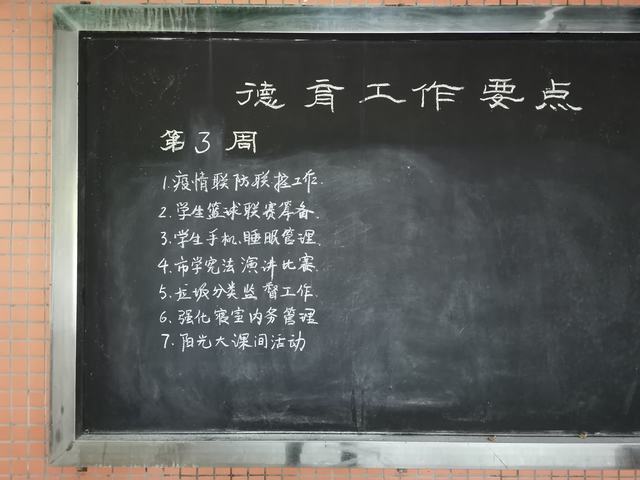 德育工作要点
第3周
1.疫情联防联控工作.
2.学生篮球联赛筹备.
3.学生手机、睡眠管理.
4.市学宪法演讲比赛.
5.垃圾分类监督工作.
6.强化寝室内务管理
7.阳光大课间活动